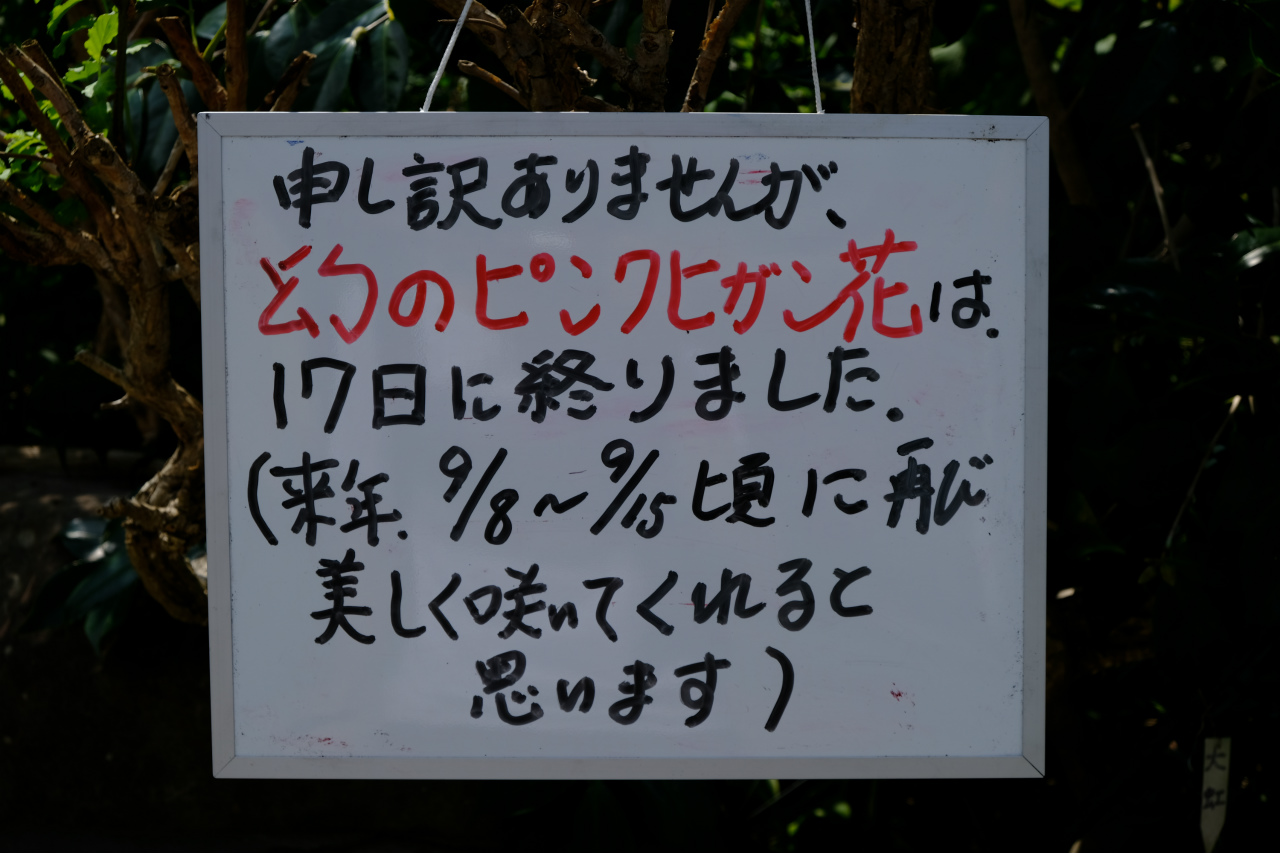 申し訳ありませんが、
幻のピンクヒガン花は、
17日に終りました。
(来年、9/8～9/15頃に再び
美しく咲いてくれると
思います)
大紅